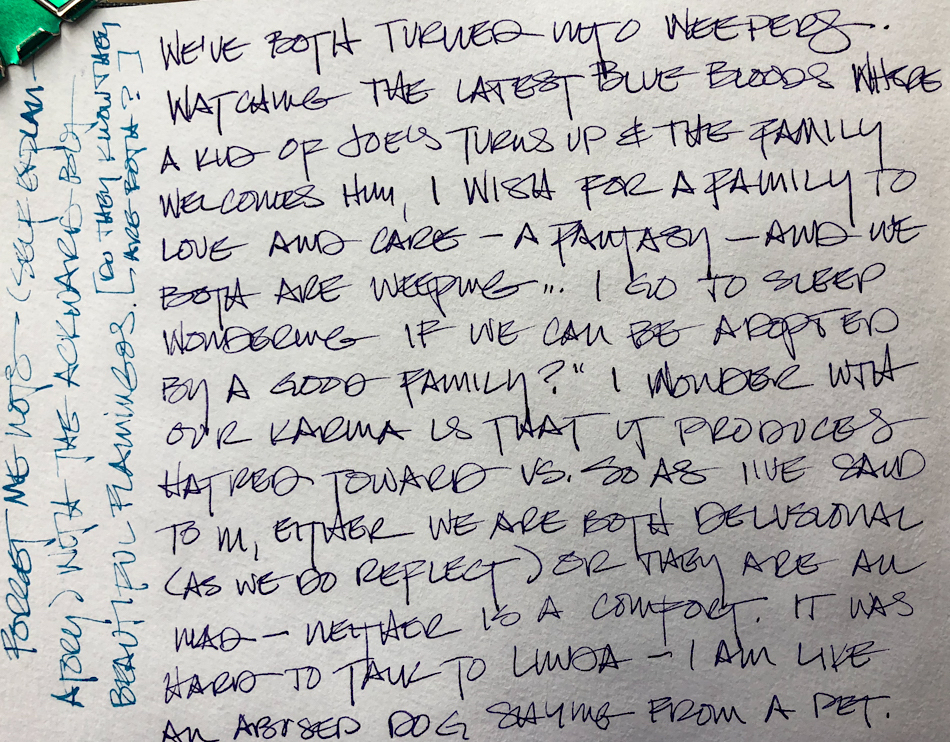 WE'VE BOTH TURNED INTO WEEPERS.
WATCHING THE LATEST BLUE BLOODS WHERE
A KID OF JOE'S TURNS UP & THE FAMILY
WELCOMES HIM, I WISH FOR A FAMILY TO
LOVE AND CARE – A FANTASY – AND WE
BOTH ARE WEEPING... I GO TO SLEEP
WONDERING IF WE CAN BE ADOPTED
BY A GOOD FAMILY?" I WONDER WITH
OUR KARMA IS THAT IT PRODUCES
HATRED TOWARD US. SO AS I'VE SAID
TO M, EITHER WE ARE BOTH DELUSIONAL
(AS WE DO REFLECT) OR THEY ARE ALL
MAD – NEITHER IS A COMFORT. IT WAS
HARD TO TALK TO LINDA – I AM LIKE
AN ABUSED DOG SHYING FROM A PET.
FORGET ME NOTS – (SELF EXPLAN-
ATORY) WITH THE ACKWARD BOLD
BEAUTIFUL FLAMINGOS. [DO THEY KNOW THEY
ARE BOTH?]